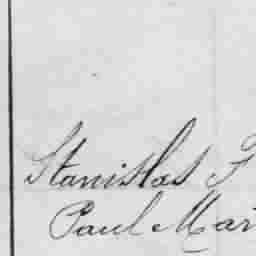 Stanislas F
Paul Mar